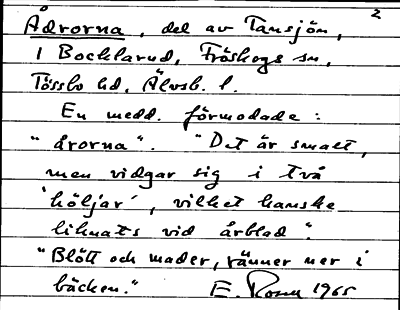 2
Ådrorna, del av Tansjön,
i Bocklarud, Fröskogs sn,
Tössbo hd, Älvsb. l.
En medd. förmodade:
"årorna". "Det är smalt,
men vidgar sig i två
'höljar', vilket kanske
liknats vid årblad".
"Blött och mader, ränner ner i
bäcken." E. Rosm 1965